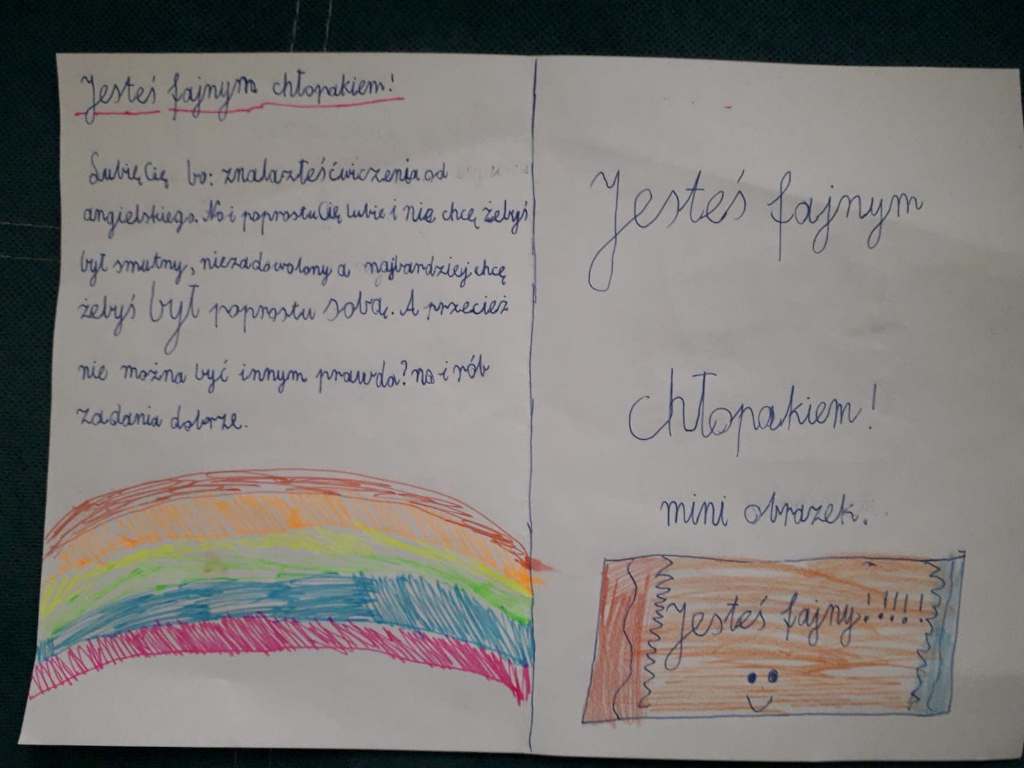 Jesteś fajnym chłopakiem!
Lubię Cię bo: znalazłeś ćwiczenia od
angielskiego. No i poprostu Cię lubie i nie chcę żebyś
był smutny, niezadowolony a najbardziej chcę
żebyś był poprostu sobą. A przecież
nie można być innym prawda? no i rób
zadania dobrze.
Jesteś fajnym
chłopakiem!
mini obrazek.
Jesteś fajny!!!!!